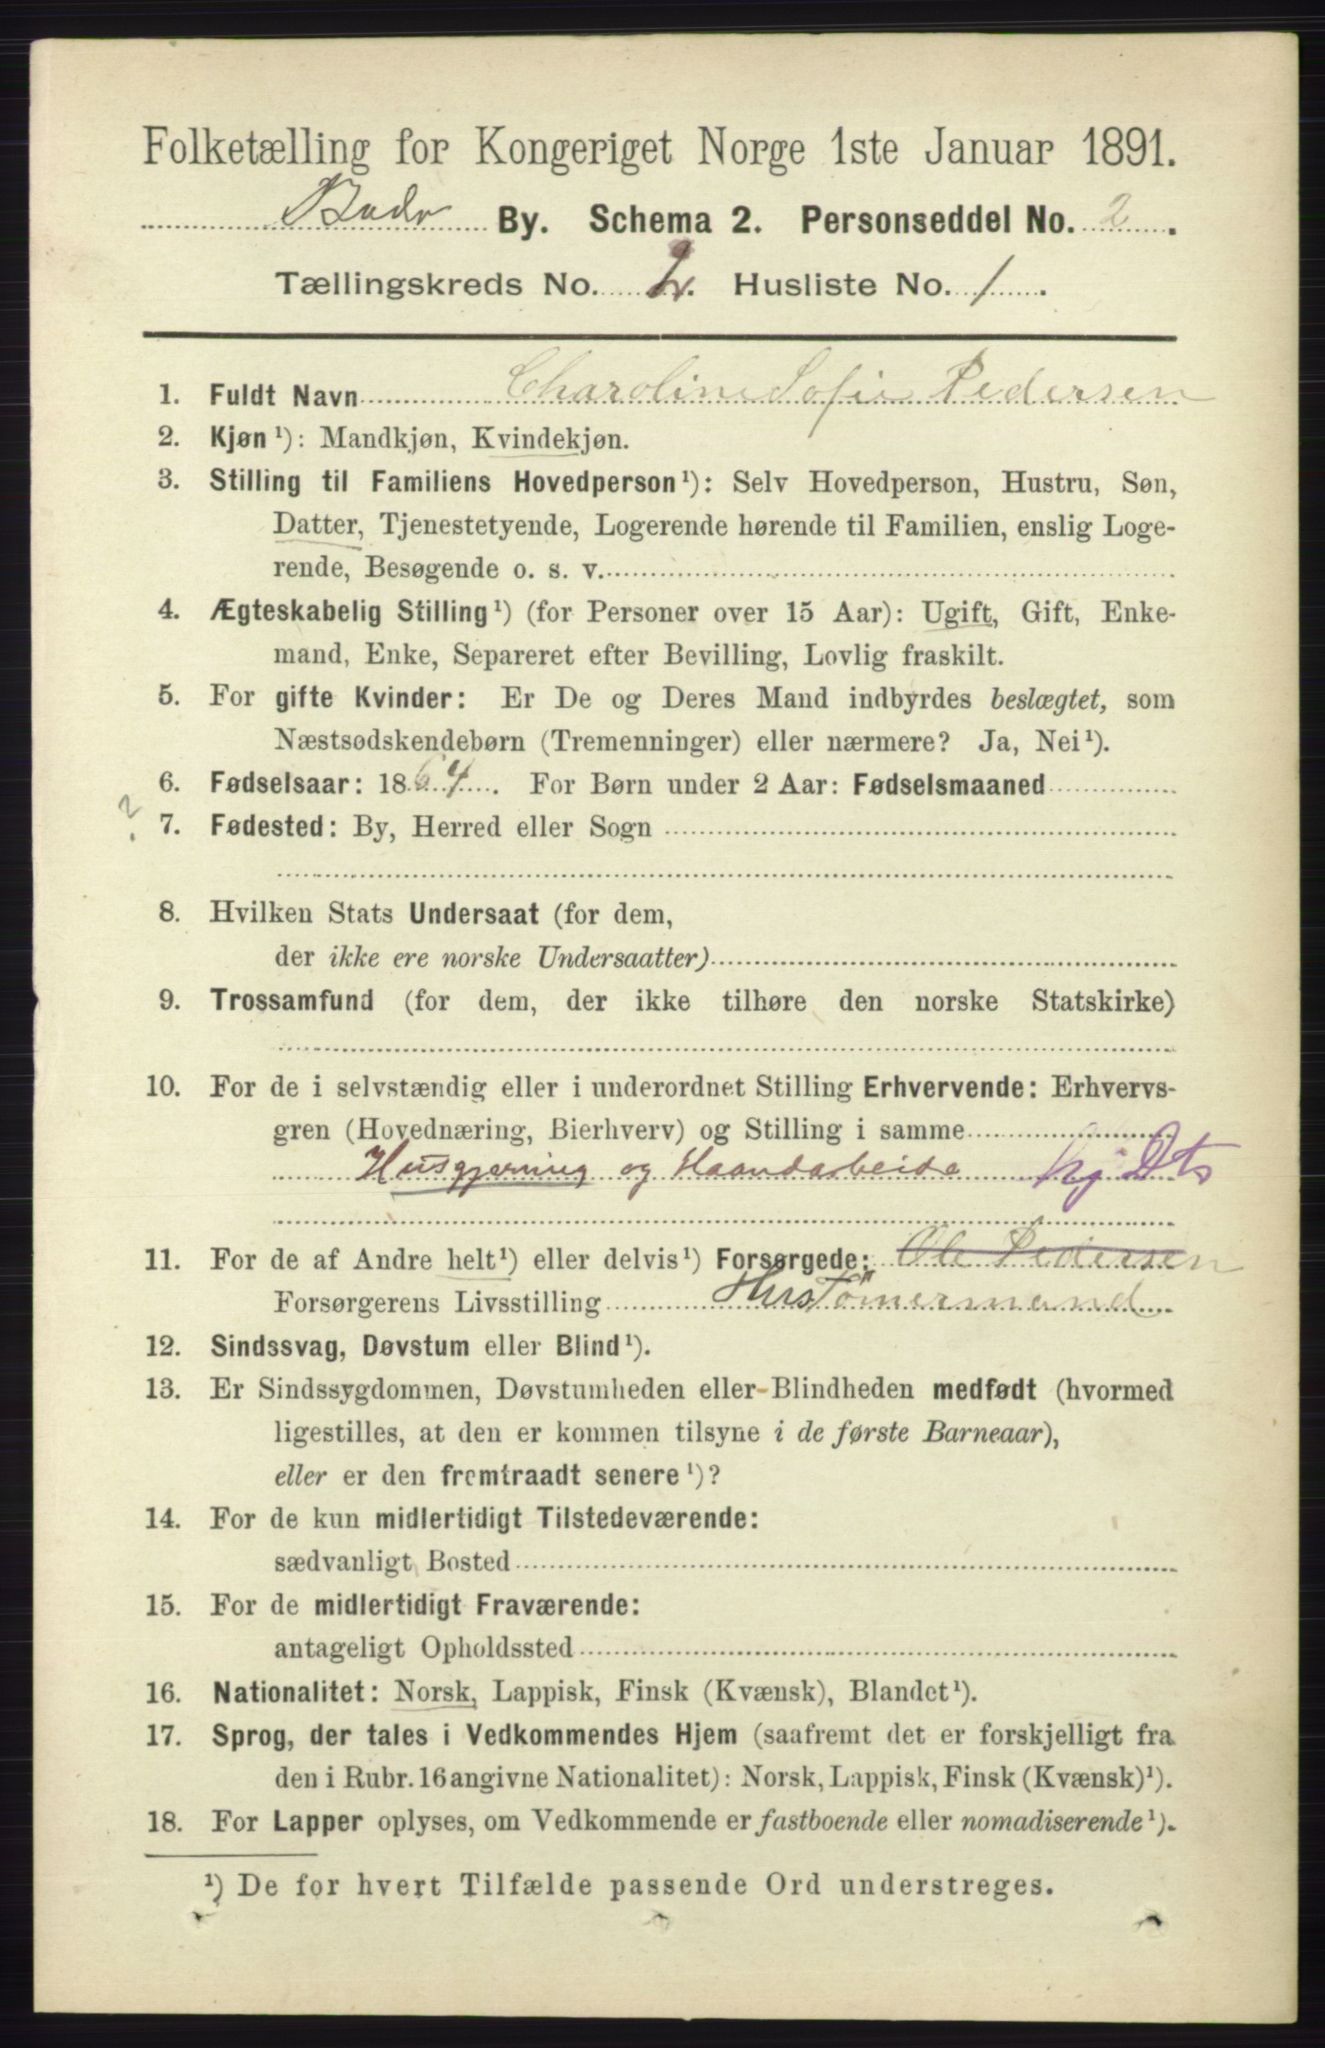 Folketælling for Kongeriget Norge 1ste Januar 1891.
Bodø By. Schema 2. Personseddel No. 2.
Tællingskreds No. 2. Husliste No. 1.
1. Fuldt Navn Charoline Sofie Pedersen
2. Kjøn¹): Mandkjøn, Kvindekjøn.
3. Stilling til Familiens Hovedperson¹): Selv Hovedperson, Hustru, Søn,
Datter, Tjenestetyende, Logerende hørende til Familien, enslig Loge-
rende, Besøgende o. s. v.
4. Ægteskabelig Stilling¹) (for Personer over 15 Aar): Ugift, Gift, Enke-
mand, Enke, Separeret efter Bevilling, Lovlig fraskilt.
5. For gifte Kvinder: Er De og Deres Mand indbyrdes beslægtet, som
Næstsødskendebørn (Tremenninger) eller nærmere? Ja, Nei¹).
6. Fødselsaar: 1864. For Børn under 2 Aar: Fødselsmaaned
? 7. Fødested: By, Herred eller Sogn
8. Hvilken Stats Undersaat (for dem,
der ikke ere norske Undersaatter)
9. Trossamfund (for dem, der ikke tilhøre den norske Statskirke)
10. For de i selvstændig eller i underordnet Stilling Erhvervende: Erhvervs-
gren (Hovednæring, Bierhverv) og Stilling i samme
Husgjerning og Haandarbeide Hg Dts
11. For de af Andre helt¹) eller delvis¹) Forsørgede: Ole Pedersen
Forsørgerens Livsstilling Hustømermand
12. Sindssvag, Døvstum eller Blind¹).
13. Er Sindssygdommen, Døvstumheden eller Blindheden medfødt (hvormed
ligestilles, at den er kommen tilsyne i de første Barneaar),
eller er den fremtraadt senere¹)?
14. For de kun midlertidigt Tilstedeværende:
sædvanligt Bosted
15. For de midlertidigt Fraværende:
antageligt Opholdssted
16. Nationalitet: Norsk, Lappisk, Finsk (Kvænsk), Blandet¹).
17. Sprog, der tales i Vedkommendes Hjem (saafremt det er forskjelligt fra
den i Rubr. 16 angivne Nationalitet): Norsk, Lappisk, Finsk (Kvænsk)¹).
18. For Lapper oplyses, om Vedkommende er fastboende eller nomadiserende¹).
¹) De for hvert Tilfælde passende Ord understreges.